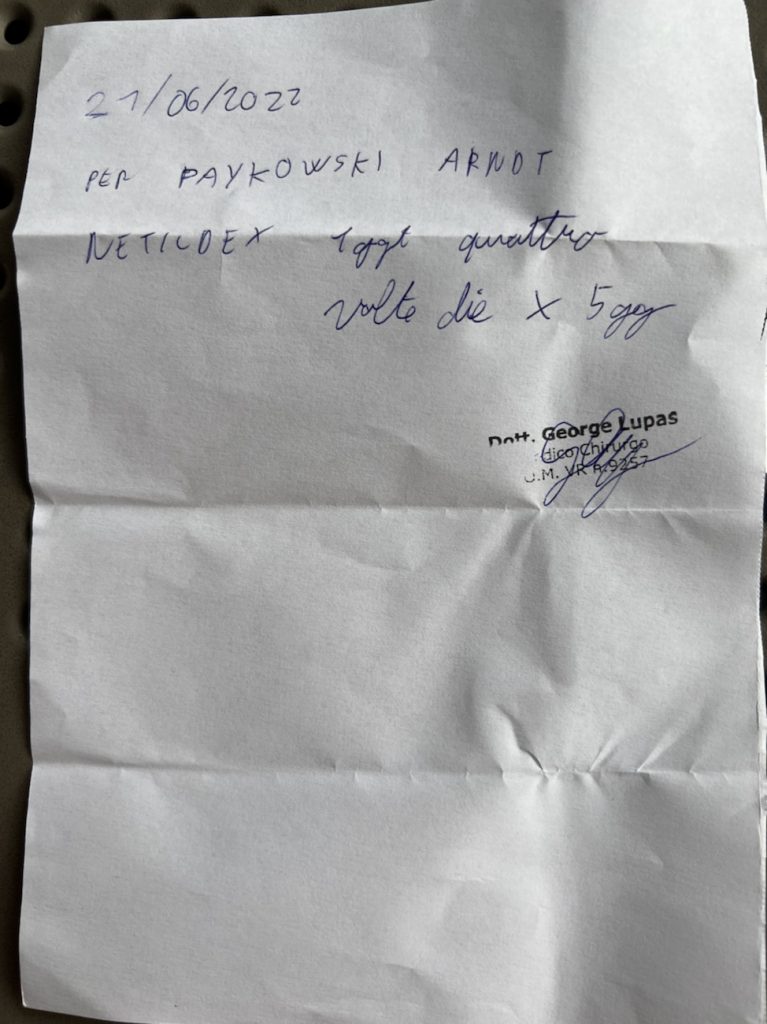 21/06/2022
PER PAYKOWSKI ARNDT
NETILDEX 1ggt quattro
volte die x 5gg
Dott. George Lupas
dico Chirurgo
O.M. VR n.9257